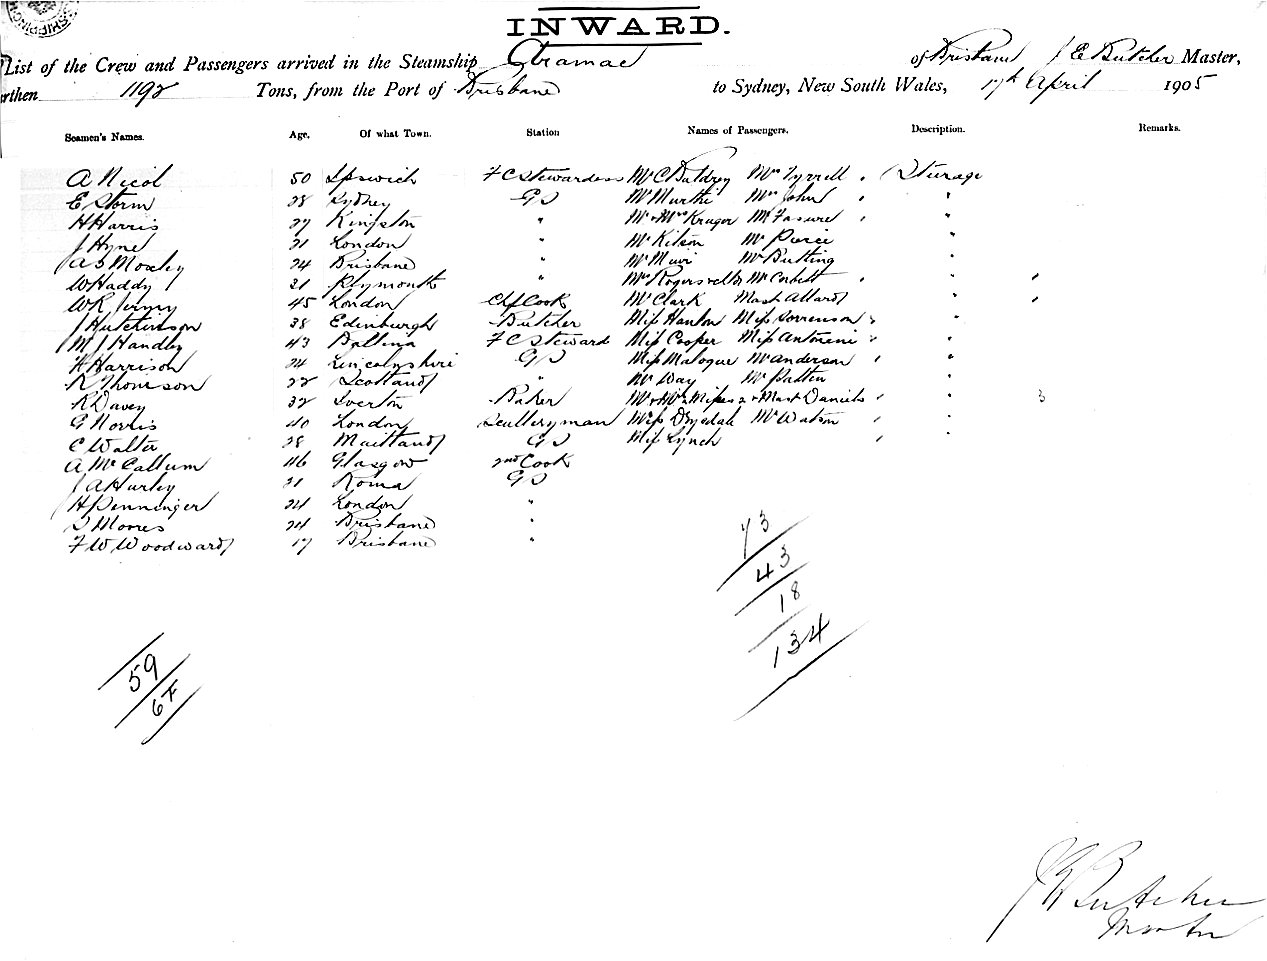 SHIPPING
INWARD.
List of the Crew and Passengers arrived in the Steamship Aramac of Brisbane J E Butcher Master,
rthen 1192 Tons, from the Port of Brisbane to Sydney, New South Wales, 17th April 1905
Seamen's Names. Age. Of what Town. Station Names of Passengers. Description. Remarks.
A Nicol 50 Ipswich F C Stewardess Mr C Baldrey Mrs Tyrrell Sturage
E Storm 28 Sydney GS Mr Murthi Mrs John "
H Harris 27 Kingston " Mr & Mrs Kruger "
J Hyne 21 London " Mr Kitson Mr Pierce "
A S Moxley 24 Brisbane " Mr Muir Mr Butting "
W Haddy 21 Plymouth " Mrs Rogers Mr Corbett "
W R 45 London Chf Cook Mr Clark Mast Allard "
J Hutchinson 38 Edinburgh Butcher Miss Hanlon Miss Sorrenson "
M J Handley 43 Ballina F C Steward Miss Cooper Miss Antonini "
H Harrison 24 Lincolnshire GS Miss Malogue Mr Anderson "
R Thomson 22 Scotland " Mr Way Mr Patten "
R Davey 32 Iverton Baker Mr & Mrs Misses 2 & Mast Daniels " 3
G Norris 40 London Sculleryman Miss Drysdale Mr Watson "
C Walter 28 Maitland GS Miss Lynch
A McCallum 46 Glasgow 2nd Cook
J A Hurley 21 Roma GS
H Penninger 24 London "
S Moores 24 Brisbane "
F W Woodward 17 Brisbane "
73
43
18
134
59
6 F
J E Butcher
Master